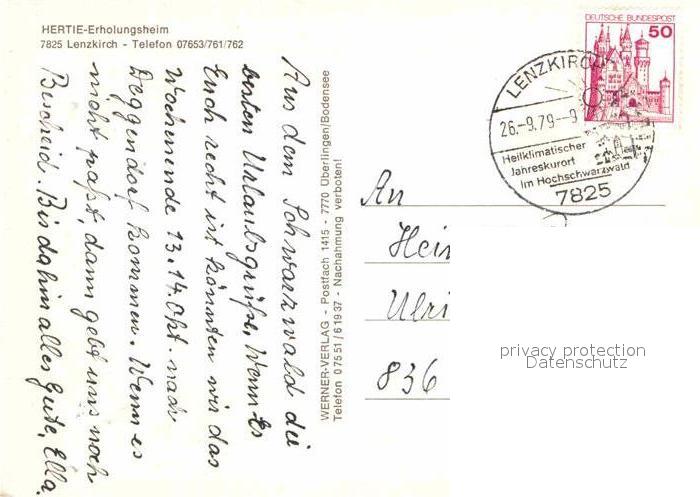 HERTIE-Erholungsheim
7825 Lenzkirch - Telefon 07653/761/762
Aus dem Schwarzwald die
besten Urlaubsgrüße, Wenn Es
Euch recht ist könnten wir das
Wochenende 13.14.Okt. nach
Deggendorf kommen. Wenn es
nicht paßt, dann gebt uns noch
Bescheid. Bis dahin alles Gute, Ella.
WERNER-VERLAG - Postfach 1415 - 7770 Überlingen/Bodensee
Telefon 07551/61937 - Nachahmung verboten!
DEUTSCHE BUNDESPOST
50
LENZKIRCH
26.-9.79.-9
Heilklimatischer
Jahreskurort
im Hochschwarzwald
7825
An
Hein
Ulri
836
privacy protection
Datenschutz